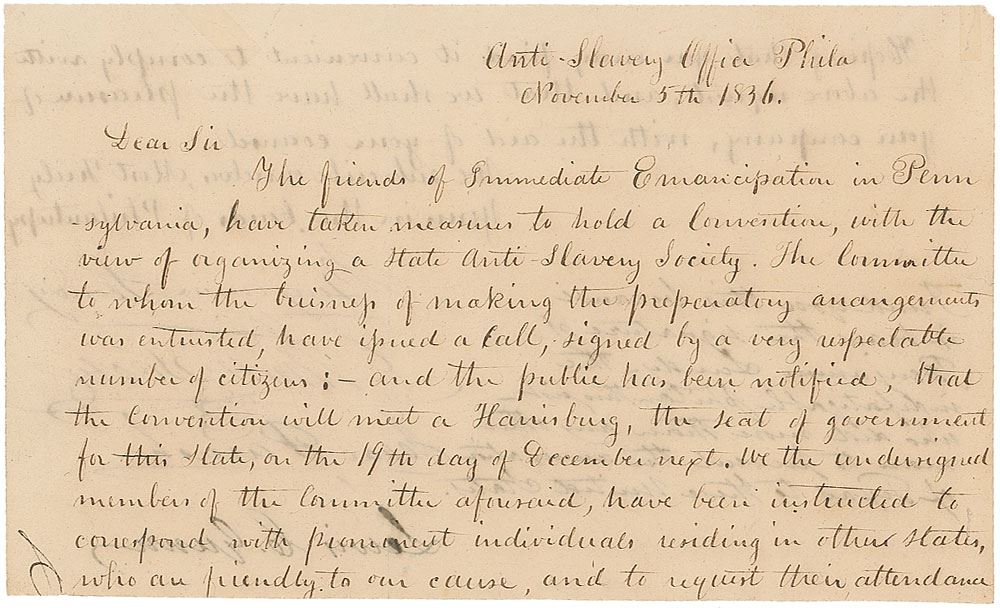 Anti-Slavery Office Phila
November 5th 1836.
Dear Sir
The friends of Immediate Emancipation in Penn
-sylvania, have taken measures to hold a Convention, with the
view of organizing a State Anti-Slavery Society. The Committee
to whom the buisness of making the preparatory arrangements
was entrusted, have issued a Call, signed by a very respectable
number of citizens:- and the public has been notified, that
the Convention will meet a Harrisburg, the seat of government
for this State, on the 19th day of December next. We the undersigned
members of the Committee aforesaid, have been instructed to
correspond with prominent individuals residing in other states,
who are friendly to our cause, and to request their attendance